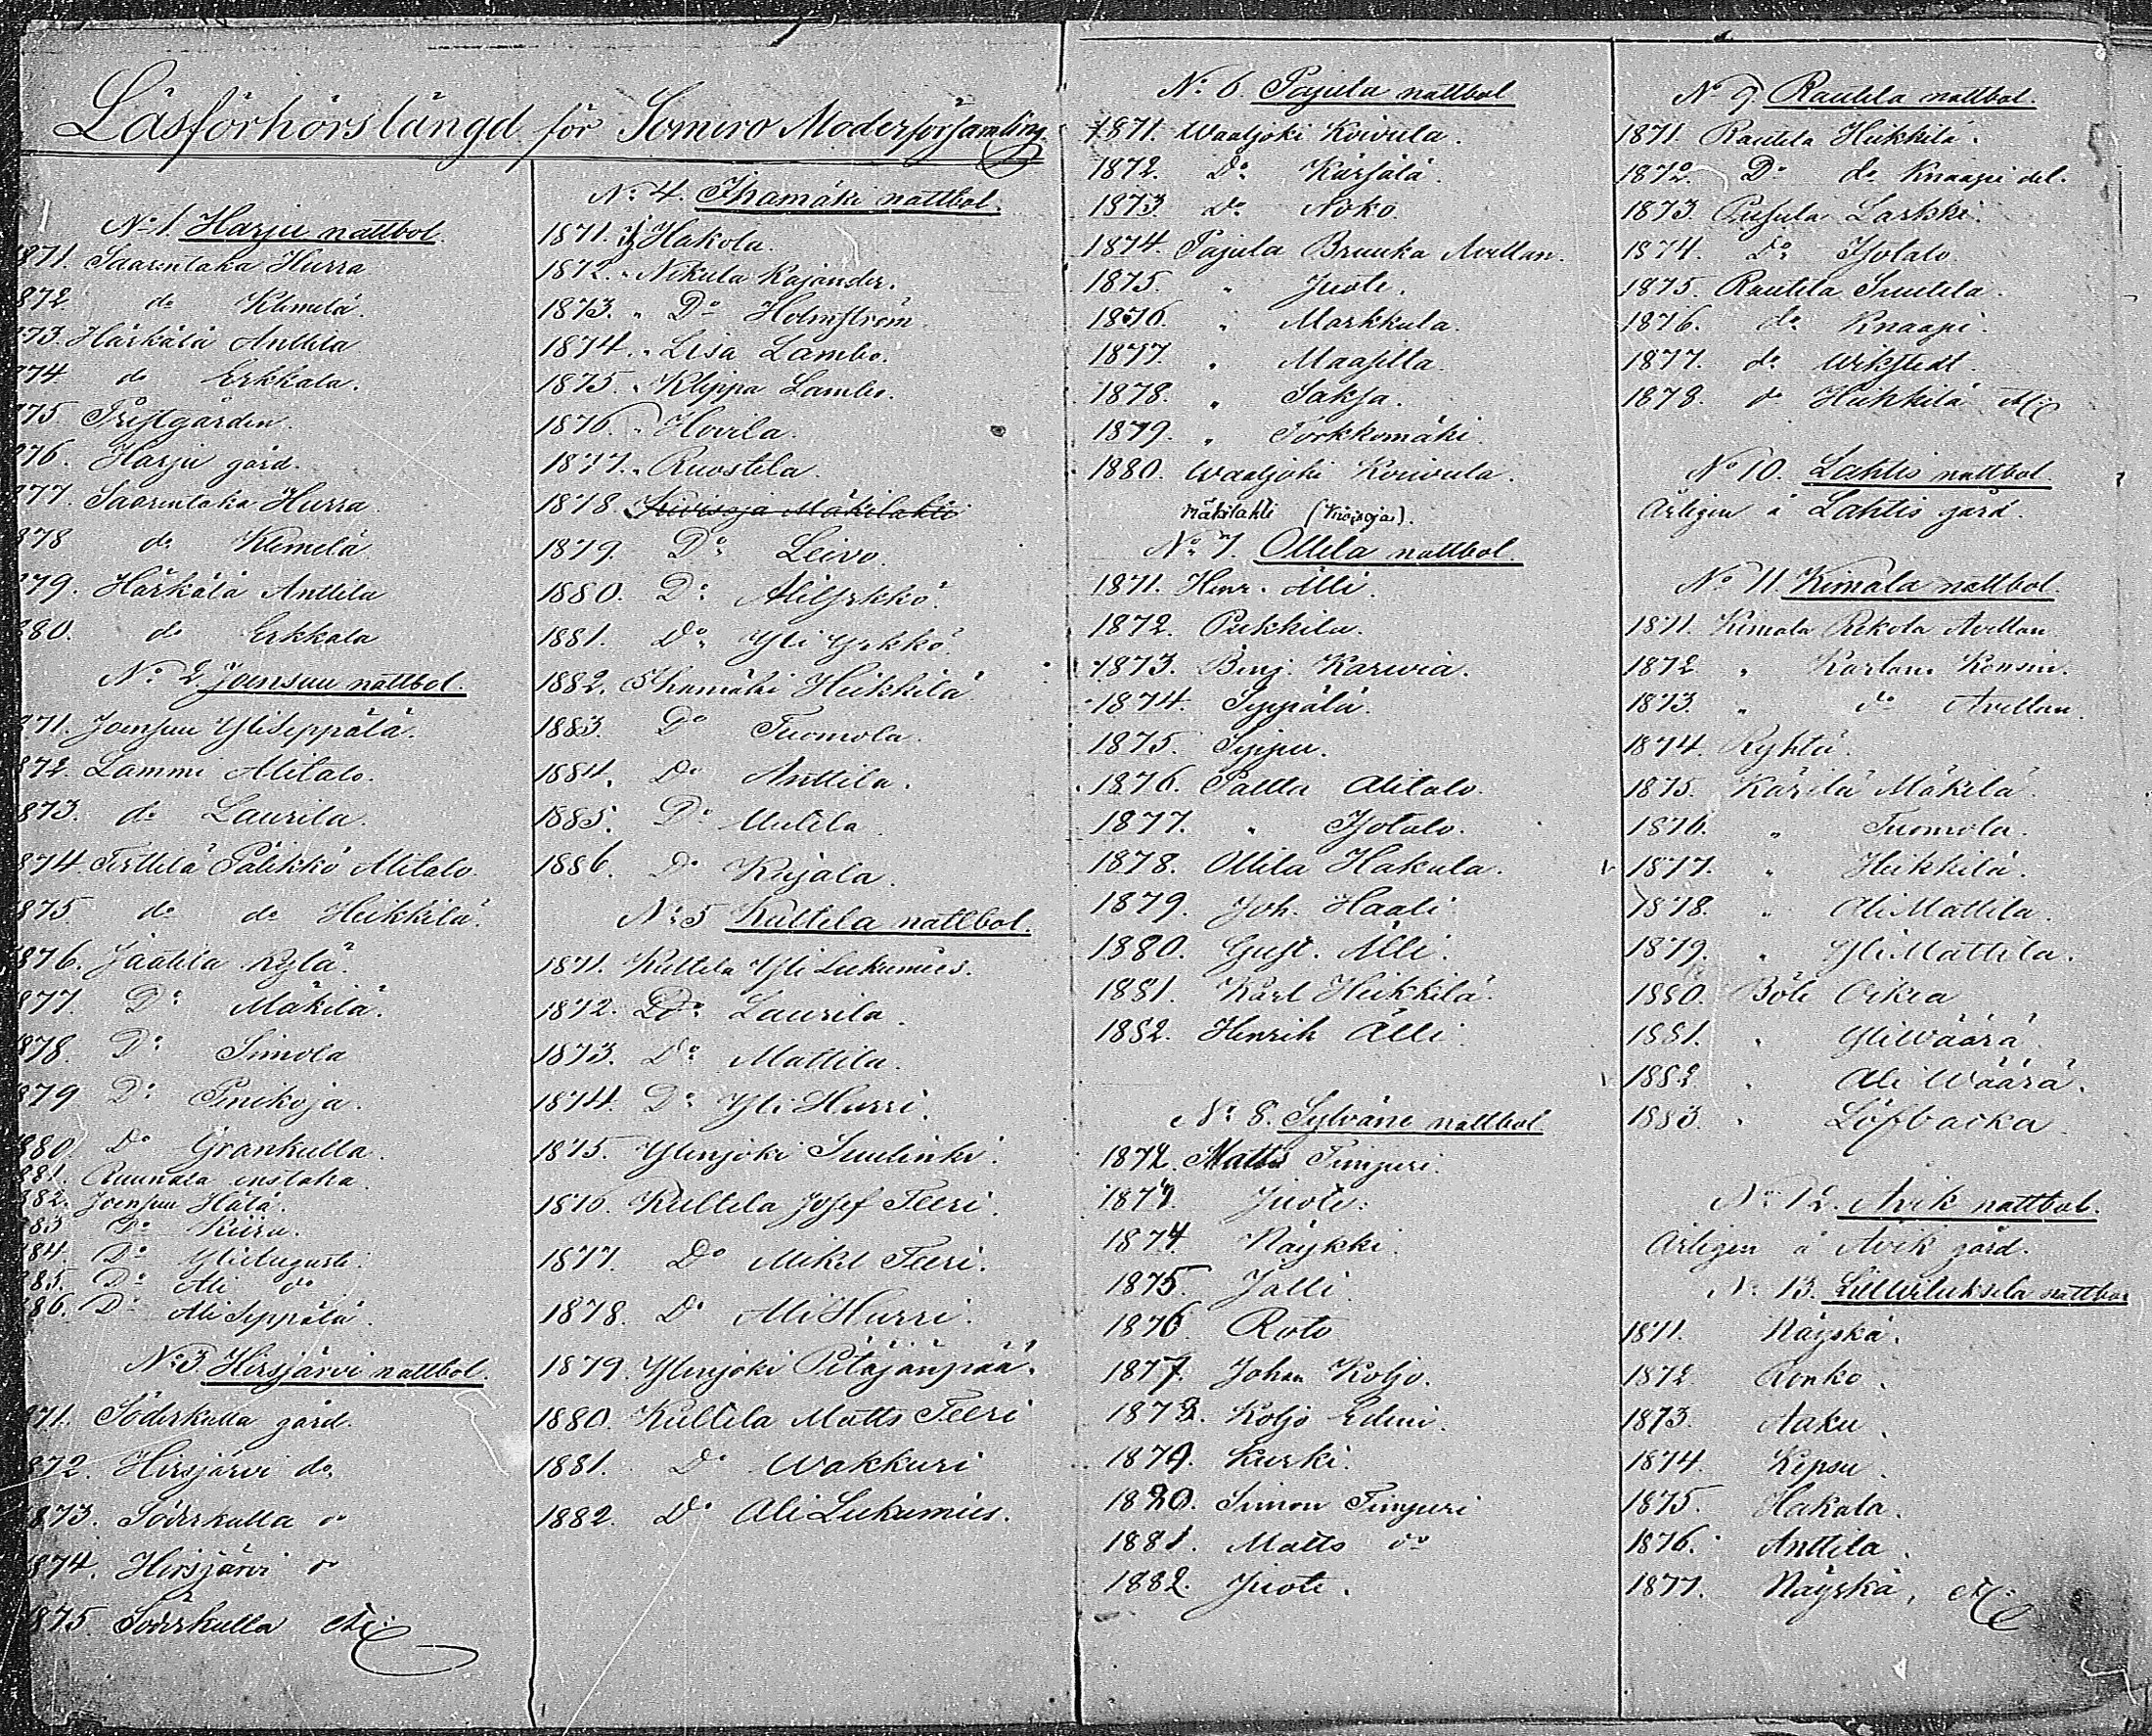 Läsförhörslängd för Somero Moderförsamling.
No 1. Harju nattbol.
1871. Saarentaka Hurra
1872 do Klemelä.
1873. Härkälä Anttila
1874 do Erkkala.
1875. Prestgården.
1876. Harju gård.
1877. Saarentaka Hurra
1878 do Klemelä
1879. Härkälä Anttila
1880. do Erkkala
No 2 Joensuu nattbol.
1871. Joensuu Yliseppälä.
1872. Lammi Alitalo.
1873. do Laurila.
1874. Terttilä Pälikkö Alitalo.
1875 do do Heikkilä.
1876. Jaatila Kylä.
1877. Do Mäkilä.
1878. Do Simola
1879 Do Pinikoja.
1880. Do Grankulla.
1881. Ruunala enstaka.
1882. Joensuu Hätä.
1883 Do Kiiru.
1884. Do YliAugusti.
1885. Do Ali do
1886. Do AliSeppälä.
No 3 Hirsjärvi nattbol.
1871. Söderkulla gård.
1872. Hirsjärvi do.
1873. Söderkulla do
1874. Hirsjärvi do
1875. Söderkulla etc.
No 4. Ihamäki nattbol.
1871. Hakola.
1872. " Nikula Kajander.
1873. " Do Holmström
1874. " Lisa Lambo.
1875. " Klippa Lambo.
1876. " Hovila.
1877. " Ruostela.
1878. Kivisoja Mäkilahti
1879. Do Leivo.
1880. Do AliYrkkö.
1881. Do Yli Yrkkö.
1882. Ihamäki Heikkilä
1883. Do Tuomola.
1884. Do Anttila.
1885. Do Uutela.
1886. Do Kujala.
No 5 Kultela nattbol.
1871. Kultela Yli Lukumies.
1872. Do Laurila.
1873. Do Mattila.
1874. Do Yli Hurri.
1875. Ylenjoki Suulinki.
1876. Kultela Josef Teeri.
1877. Do Mikel Teeri.
1878. Do Ali Hurri.
1879. Ylenjoki Pitäjänpää.
1880. Kultela Matts Teeri
1881. Do Wakkuri
1882. Do Ali Lukumies.
No 6. Pajula nattbol
1871. Waaljoki Koivula.
1872. Do Kärjälä.
1873. Do Noko
1874. Pajula Bruuka Avellan.
1875. " Juoti.
1876. " Markkula.
1877. " Maasilta.
1878. " Saksa.
1879. " Törkkomäki.
1880. Waaljoki Koivula.
Mäkilahti (Kivisoja).
No 7. Ollila nattbol.
1871. Henr. Älli.
1872. Pukkila.
1873. Benj. Karvia.
1874. Seppälä.
1875. Seppu.
1876. Paltta Alitalo.
1877. " Isotalo.
1878. Ollila Hakula.
1879. Joh. Haali
1880. Gust. Älli.
1881. Karl Heikkilä.
1882. Henrik Älli.
No 8. Sylväne nattbol
1872. Matts Timperi.
1873. Juoti.
1874 Näykki.
1875. Jalli
1876. Roto
1877. Johan Koljo.
1878. Koljo Edvi.
1879. Kurki.
1880. Simon Timperi
1881. Matts do
1882. Juoti.
No 9. Rautela nattbol.
1871. Rautela Heikkilä.
1872. Do do Knaapi del.
1873. Pusula Larkki.
1874. Do Isotalo
1875. Rautela Suutela.
1876. do Knaapi.
1877. do Wikstedt
1878. do Heikkilä etc.
No 10. Lahtis nattbol.
Årligen å Lahtis gård.
No 11. Kimala nattbol.
1871. Kimala Rekola Avellan
1872 " Karlano Konsin.
1873. " do Avellan.
1874. Ryhtä.
1875. Kärilä Mäkilä.
1876. " Tuomola.
1877. " Heikkilä.
1878. " AliMattila.
1879. " YliMattila.
1880. Böle Oikia
1881. " YliWäärä
1882 " Ali Wäärä.
1883. " Löfbacka
No 12. Avik nattbol.
Årligen å Avik gård.
No 13. Lilltviluksela nattbol
1871. Näyskä.
1872 Ronko.
1873. Aaku.
1874. Kipsu.
1875. Hakala.
1876. Anttila.
1877. Näyskä, etc.